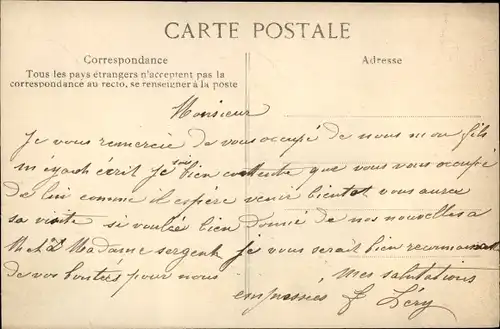 CARTE POSTALE
Correspondance
Adresse
Tous les pays étrangers n'acceptent pas la
correspondance au recto, se renseigner à la poste
Monsieur
Je vous remercie de vous occupé de nous mon fils
m'ayant écrit je suis bien contente que vous vous occupé
de lui comme il espère venir bientot vous aurez
sa visite si voulez bien donné de nos nouvelles a
M et Madame sergent je vous serait bien
de vos bontées pour nous
mes salutations
empressées